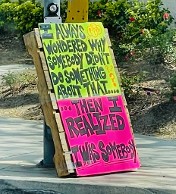 I ALWAYS
WONDERED WHY
SOMEBODY DIDN'T
DO SOMETHING
ABOUT THAT...
...THEN I
REALIZED
I WAS SOMEBODY